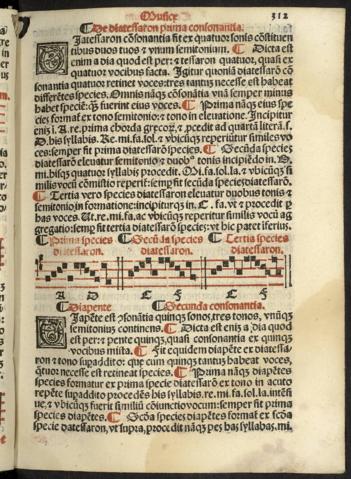 Musice 312
¶ De diatessaron prima consonantia.
Diatessaron cōsonantia fit ex quatuor sonis cōstituen
tibus duos tuos ⁊ vnum semitonium. ¶ Dicta est
enim a dia quod est per: ⁊ tessaron quatuor, quasi ex
quatuor vocibus facta. Igitur quoniā diatessarō cō
sonantia quatuor retinet voces: tres tantuʒ necesse est habeat
differētes species. Omnis nāqʒ cōsonātia vna semper minus
habet speciē: qʒ fuerint eius voces. ¶ Prima nāqʒ eius spe
cies formaƭ ex tono semitonio: ⁊ tono in eleuatione. Incipitur
re. prima chorda ⁊ pcedit ad quartā literā. s.
D. his syllabis. Re. mi. fa. sol. ⁊ vbicūqʒ reperiūtur similes vo
ces: semper fit prima diatessarō species. ¶ Secūda species
diatessarō eleuatur semitonio ⁊ duobꝰ tonis incipiēdo in
mi. bisqʒ quatuor syllabis procedit. Mi. fa. sol. la. ⁊ vbicūqʒ si
milis vocū cōmistio reperiƭ: semp fit secūda species diatessarō.
¶ Tertia vero species diatessaron eleuatur duobus tonis ⁊
semitonio, in formatione: incipiturqʒ in. C. fa. vt ⁊ procedit p
has voces. Ut. re. mi. fa, ac vbicūqʒ reperitur similis vocū ag
gregatio: semp fit tertia diatessarō species: vt hic patet iferius.
¶ Prima species ¶ Secūda species ¶ Tertia species
diatessaron. diatessaron. diatessaron.
A D
C
C
¶ Diapente ¶ Secunda consonantia.
Diapēte est ꝯsonātia quinqʒ sonos, tres tonos, vnūqʒ
semitonius continens. ¶ Dicta est eniʒ a dia quod
est per: ⁊ pente quinqʒ, quasi consonantia ex quinqʒ
vocibus mista. ¶ Fit equidem diapēte ex diatessa-
ron ⁊ tono supaddito: que cum quinqʒ tantuʒ babeat voces,
quatuor necesse est retineat species. ¶ Prima nāqʒ diapētes
species formatur ex prima specie diatessarō ex tono in acuto
repēte supaddito procedēs his syllabis. re. mi. fa. sol. la. intēsi
ue, ⁊ vbicūqʒ fuerit similiū cōiunctio vocum: semper fit prima
species diapētes. ¶ Scōa species diapētes formaƭ ex scōa
specie datessaron, vt supra, procedit nāqʒ pez has syllabas, mi.